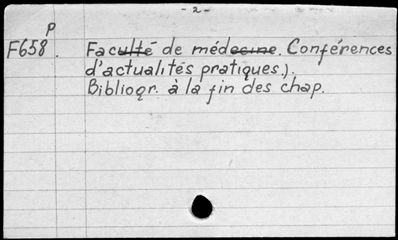 - 2 -
P
F658. Faculté de médecine. Conférences
d'actualités pratiques.).
Bibliogr. à la fin des chap.